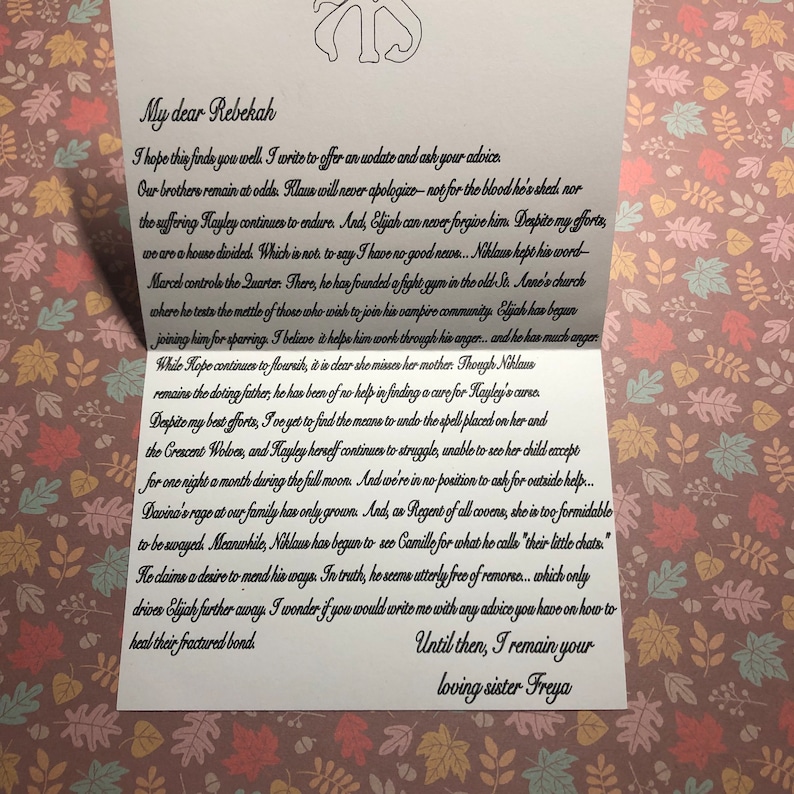 My dear Rebekah
I hope this finds you well. I write to offer an uodate and ask your advice.
Our brothers remain at odds. Klaus will never apologize– not for the blood he's shed. nor
the suffering Hayley continues to endure. And, Elijah can never forgive him. Despite my efforts,
we are a house divided. Which is not. to say I have no good news... Niklaus kept his word–
Marcel controls the Quarter. There, he has founded a fight gym in the old St. Anne's church
where he tests the mettle of those who wish to join his vampire community. Elijah has begun
joining him for sparring. I believe it helps him work through his anger... and he has much anger.
While Hope continues to floursih, it is clear she misses her mother. Though Niklaus
remains the doting father, he has been of no help in finding a cure for Hayley's curse.
Despite my best efforts, I've yet to find the means to undo the spell placed on her and
the Crescent Wolves, and Hayley herself continues to struggle, unable to see her child except
for one night a month during the full moon. And we're in no position to ask for outside help...
Davina's rage at our family has only grown. And, as Regent of all covens, she is too formidable
to be swayed. Meanwhile, Niklaus has begun to see Camille for what he calls "their little chats."
He claims a desire to mend his ways. In truth, he seems utterly free of remorse... which only
drives Elijah further away. I wonder if you would write me with any advice you have on how to
heal their fractured bond.
Until then, I remain your
loving sister Freya